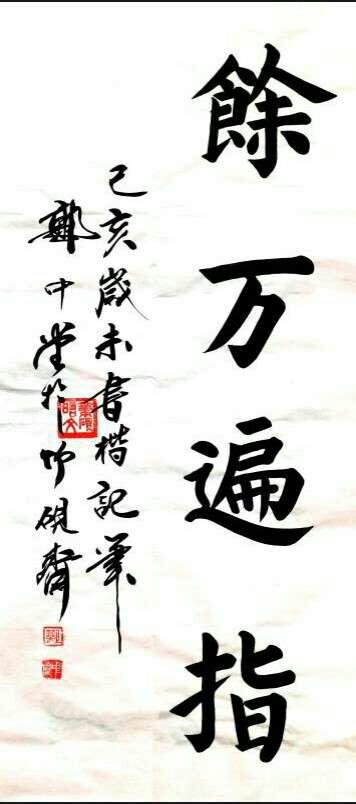 餘万遍指
己亥歲末書楷記筆
鄭中堂於竹硯齋